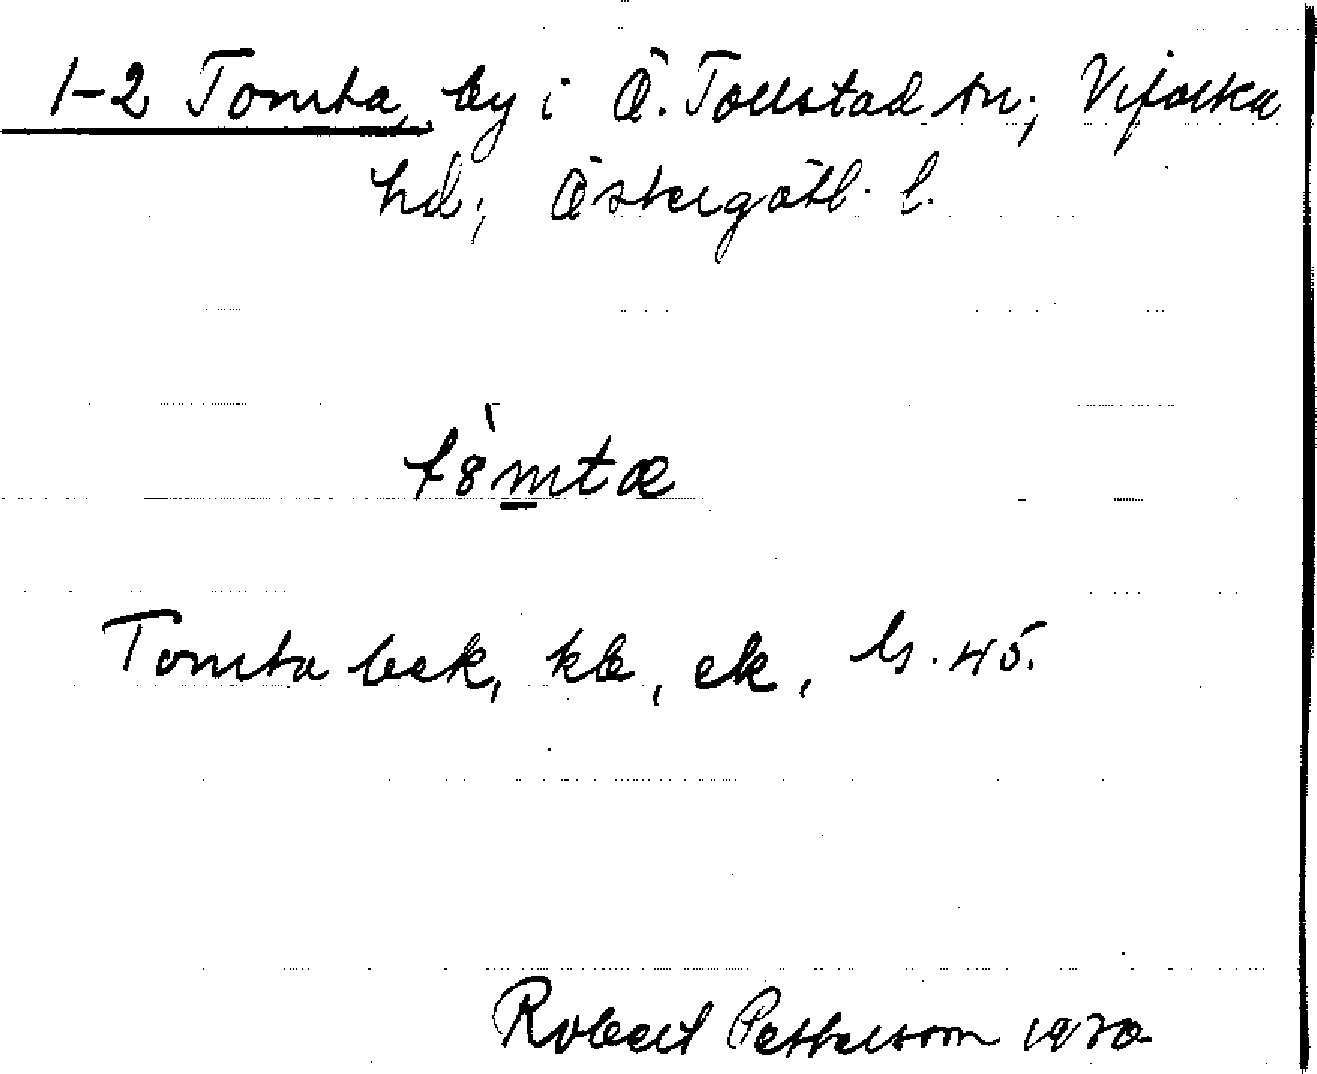 1-2 Tomta, by i Ö. Tollstad sn; Vifolka
hd; Östergötl. l.
t8̀mtæ
Tomta bek, kb, ek, ls. 45.
Robert Pettersson 1920